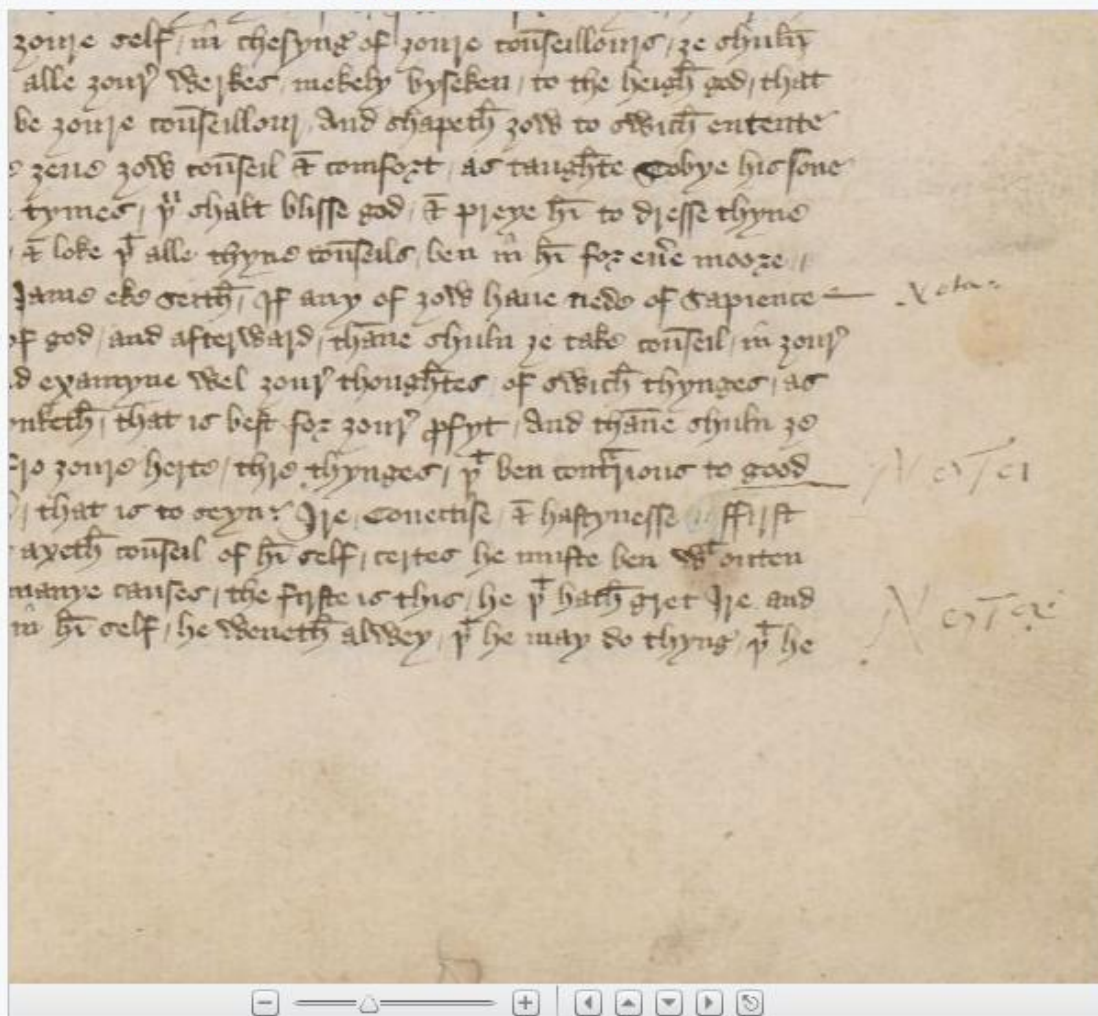 zoure self / in chesyng of zoure conseillours / ze shuln
alle zour werkes / mekely byseken / to the heigh god / that
be zoure conseillour / And shapeth zow to swich entente
zeue zow conseil & comfort / as taughte Tobye his sone
tymes / þu shalt blisse god / & preye hī to dresse thyne
& loke þt alle thyne conseils / ben in hī for eu̾e moore /
Jame eke seith / yf any of zow haue nede of Sapience Nota
of god / and afterward / thāne shuln ze take conseil / in zour
examyne wel zour thoughtes / of swich thynges / as
that is best for zour ꝓfyt / And thāne shuln ze
fro zoure herte / thre thynges / þt ben contrarious to good Nota
/ that is to seyn : Ire / Coueitise / & hastynesse / ffirst
axeth conseil of hī self / certes he muste ben wt outen
manye causes / the firste is this / he þt hath gret Ire and
in hī self / he weneth alwey / þt he may do thyng / þt he Nota